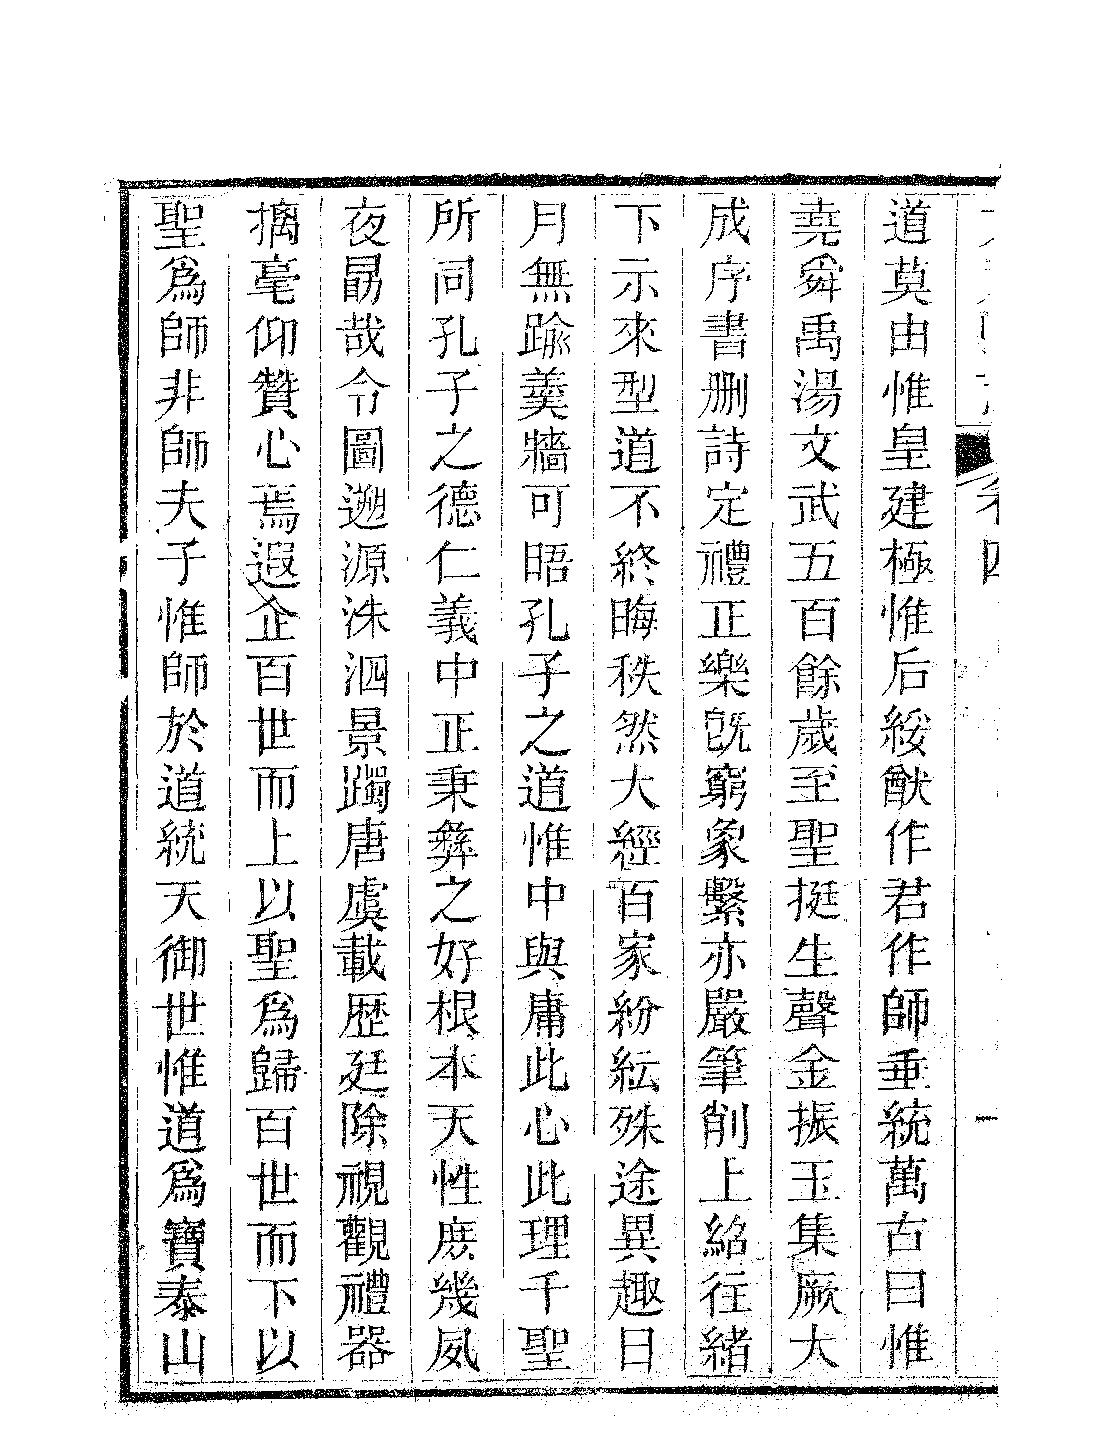 卷四
一
道莫由惟皇建極惟后綏猷作君作師垂統萬古曰惟
堯舜禹湯文武五百餘歲至聖挺生聲金振玉集厥大
成序書刪詩定禮正樂旣窮象繫亦嚴筆削上紹往緒
下示來型道不終晦秩然大經百家紛紜殊途異趣日
月無踰羹牆可晤孔子之道惟中與庸此心此理千聖
所同孔子之德仁義中正秉彝之好根本天性庶幾夙
夜勗哉令圖遡源洙泗景躅唐虞載歷廷除視觀禮器
摛毫仰贊心焉遐企百世而上以聖爲歸百世而下以
聖爲師非師夫子惟師於道統天御世惟道爲寶泰山